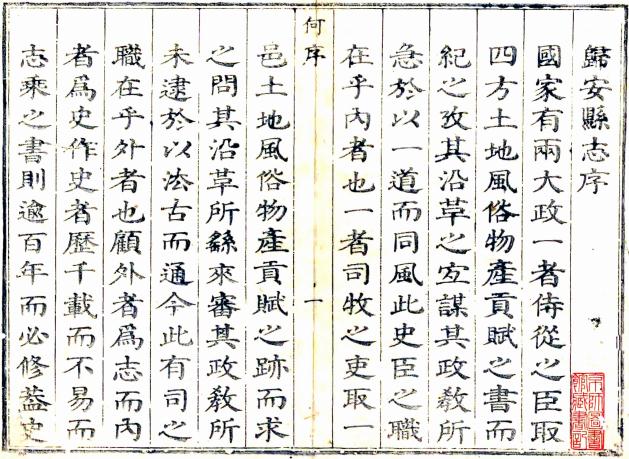 歸安縣志序
國家有兩大政一者侍從之臣取
四方土地風俗物產貢賦之書而
紀之攷其沿革之宐謀其政敎所
急於以一道而同風此史臣之職
在乎內者也一者司牧之吏取一
何序
一
邑土地風俗物產貢賦之跡而求
之問其沿革所繇來審其政敎所
未逮於以法古而通今此有司之
職在乎外者也顧外者爲志而內
者爲史作史者歷千載而不易而
志乘之書則逾百年而必修葢史